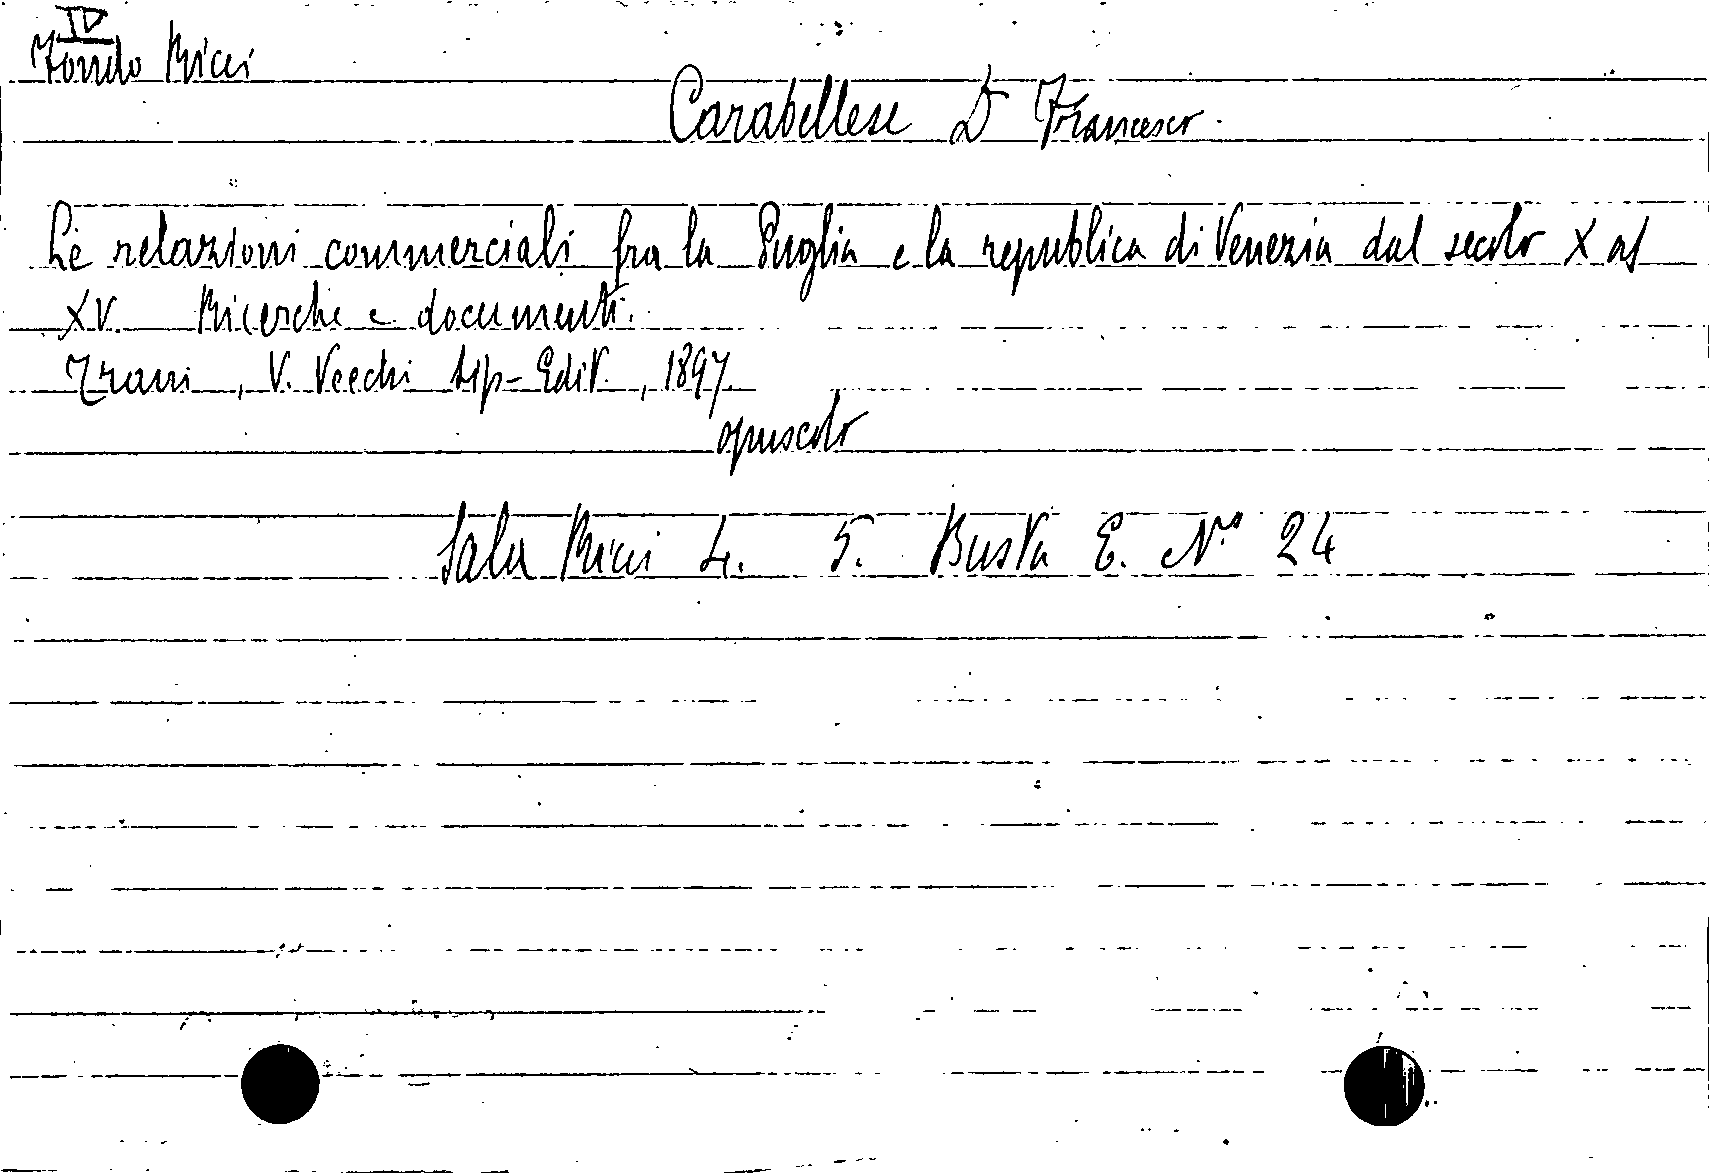 IV
Fondo Ricci
Carabellese Dr Francesco.
Le relazioni commerciali fra la Puglia e la republica di Venezia dal secolo X al
XV. Ricerche e documenti.
Trani, V. Vecchi tip-Edit., 1897.
opuscolo
Sala Ricci 4. 5. Busta E. No 24